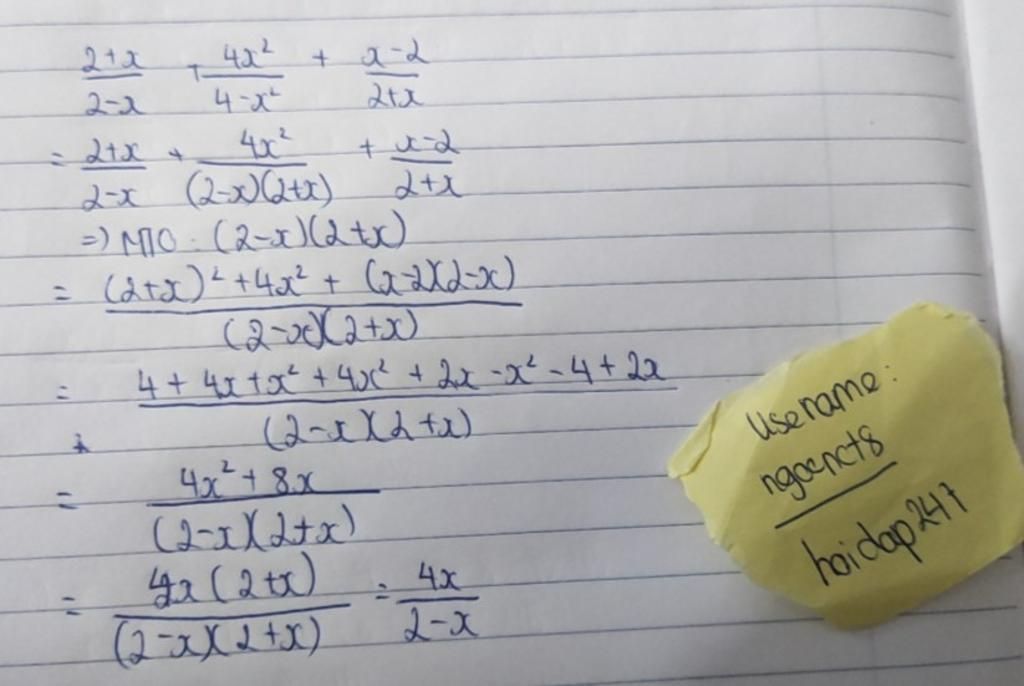 \frac{2+x}{2-x} + \frac{4x^2}{4-x^2} + \frac{x-2}{2+x}
= \frac{2+x}{2-x} + \frac{4x^2}{(2-x)(2+x)} + \frac{x-2}{2+x}
=) MTC: (2-x)(2+x)
= \frac{(2+x)^2+4x^2+(x-2)(2-x)}{(2-x)(2+x)}
= \frac{4+4x+x^2+4x^2+2x-x^2-4+2x}{(2-x)(2+x)}
= \frac{4x^2+8x}{(2-x)(2+x)}
= \frac{4x(2+x)}{(2-x)(2+x)} = \frac{4x}{2-x}
Usename:
ngocnct8
hoidap247